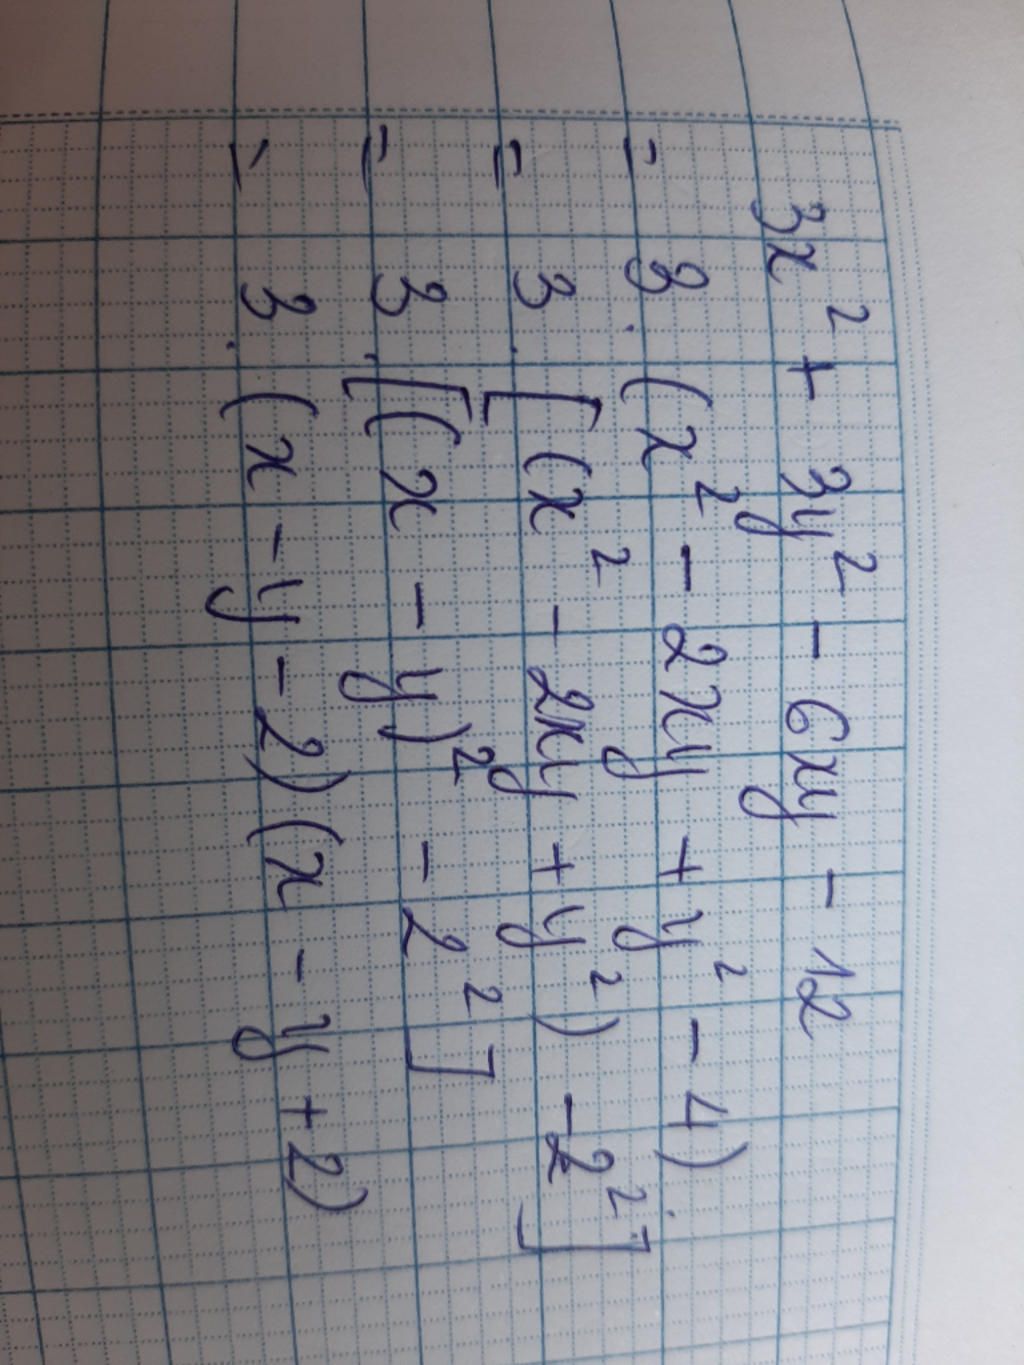 3x² + 3y² - 6xy - 12
= 3 · (x² - 2xy + y² - 4)
= 3 · [(x² - 2xy + y²) - 2²]
= 3 · [(x - y)² - 2²]
= 3 · (x - y - 2)(x - y + 2)